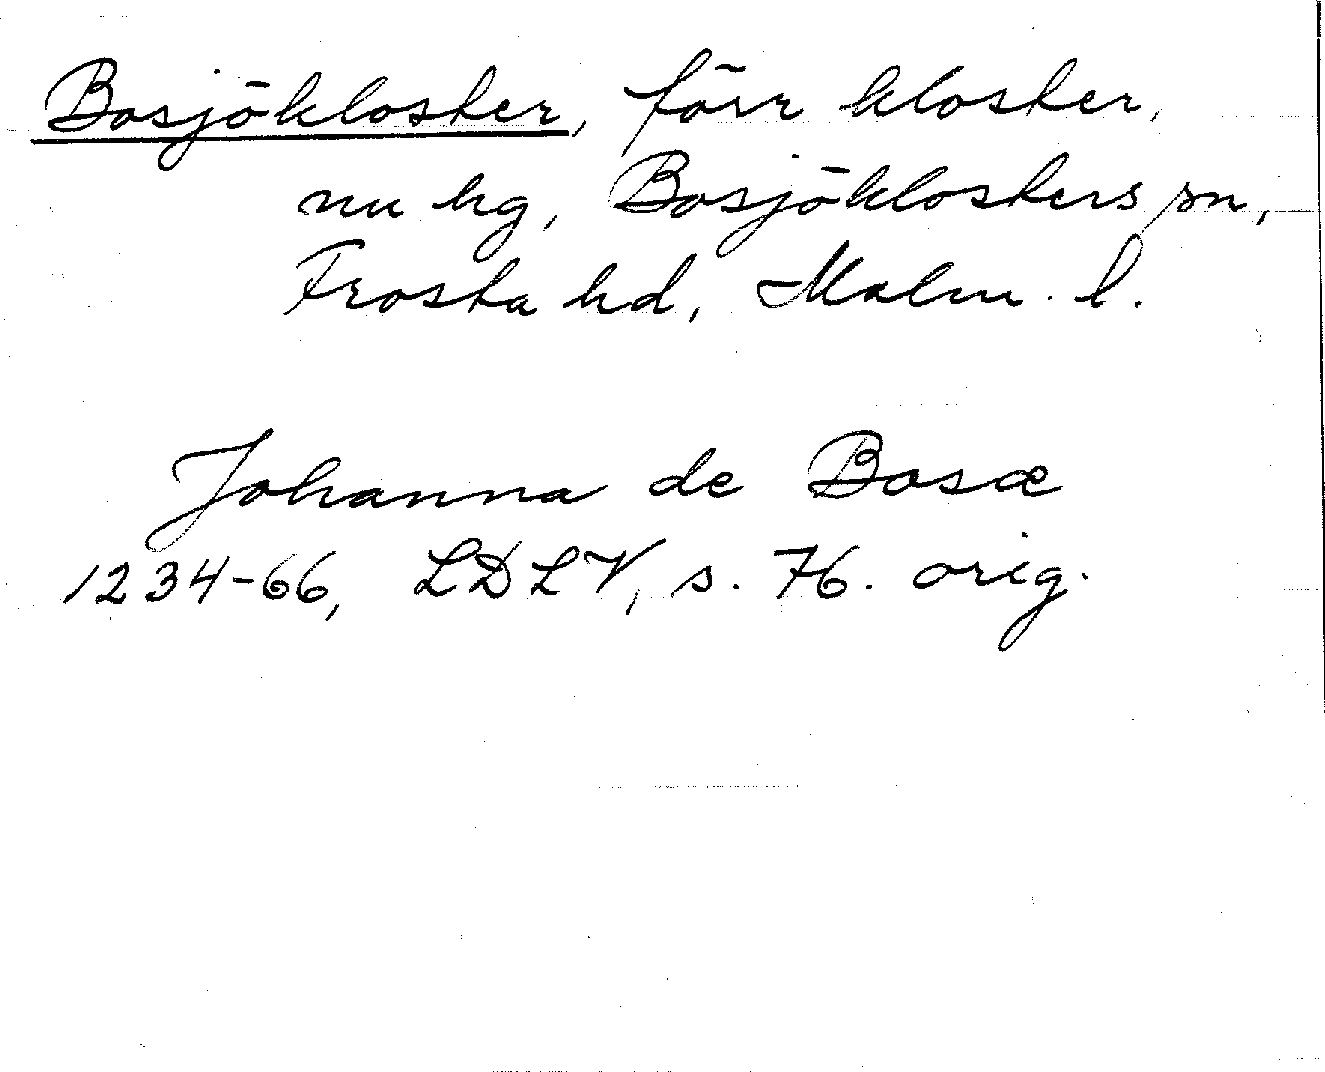 Bosjökloster, förr kloster,
nu hg, Bosjöklosters sn,
Frosta hd, Malm. l.
Johanna de Bosœ
1234-66, LDLV, s. 76. orig.